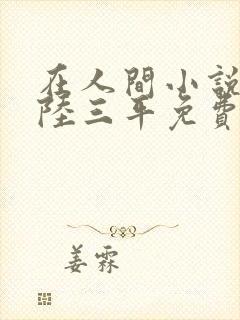 在人間小說
陸三年免費
姜霖